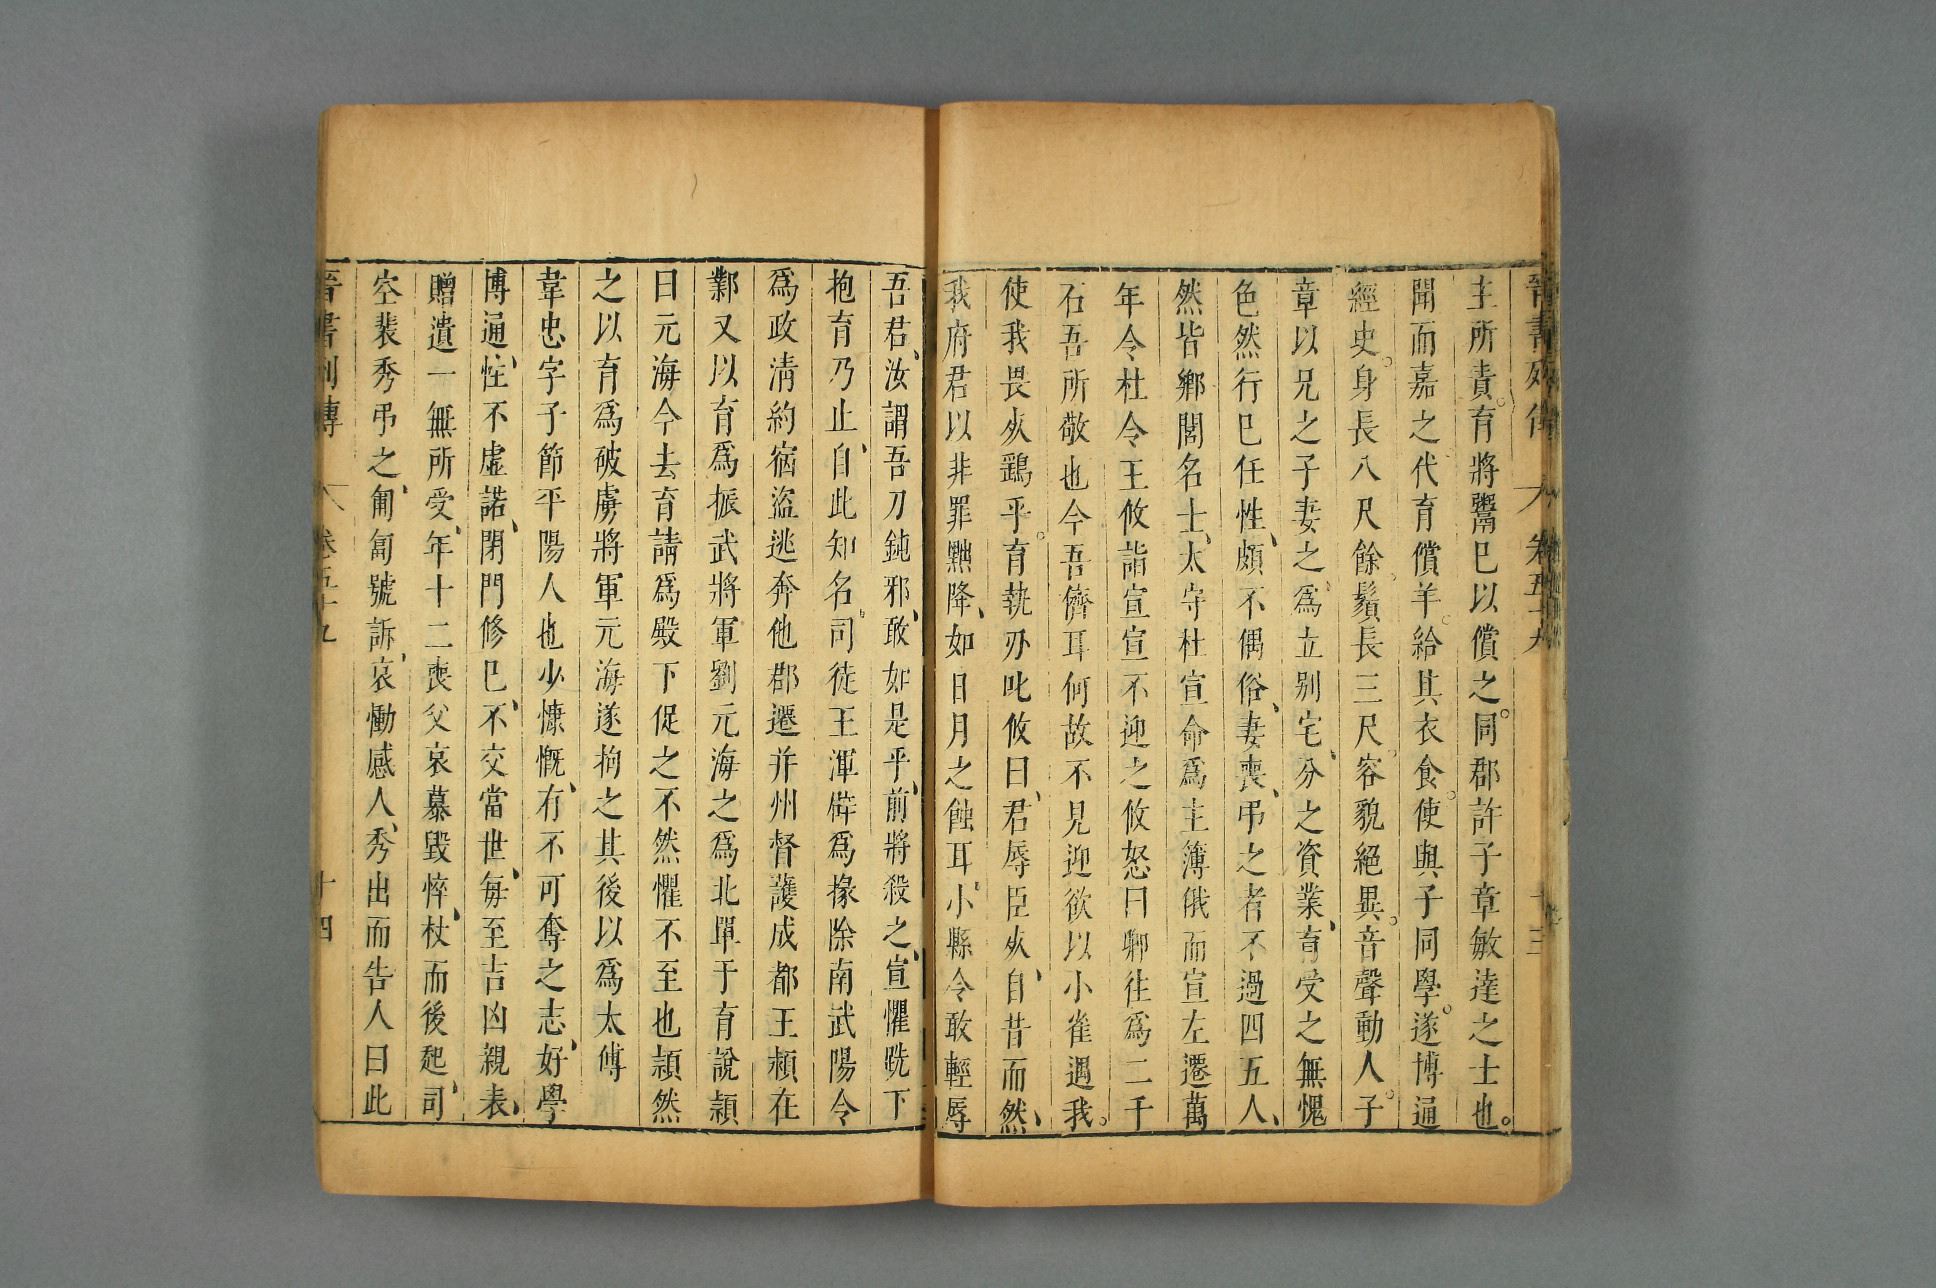 主所責育將鬻已以償之同郡許子章敏達之士也
聞而嘉之代育償羊給其衣食使與子同學遂博通
經史身長八尺餘鬚長三尺容貌絕異音聲動人子
章以兄之子妻之爲立別宅分之資業育受之無愧
色然行已任性頗不偶俗妻喪弔之者不過四五人
然皆鄉閭名士太守杜宣命爲主簿俄而宣左遷萬
年令杜令王攸詣宣宣不迎之攸怒曰卿往爲二千
石吾所敬也今吾儕耳何故不見迎欲以小雀遇我
使我畏死鷂乎育執刀叱攸曰君辱臣死自昔而然
我府君以非罪黜降如日月之蝕耳小縣令敢輕辱
吾君汝謂吾刀鈍邪敢如是乎前將殺之宣懼跣下
抱育乃止自此知名司徒王渾辟爲掾除南武陽令
爲政清約宿盜逃奔他郡遷并州督護成都王穎在
鄴又以育爲振武將軍劉元海之爲北單于育說穎
曰元海今去育請爲殿下促之不然懼不至也穎然
之以育爲破虜將軍元海遂拘之其後以爲太傅
韋忠字子節平陽人也少慷慨有不可奪之志好學
博通性不虛諾閉門修已不交當世每至吉凶親表
贈遺一無所受年十二喪父哀慕毀悴杖而後起司
空裴秀弔之匍匐號訴哀慟感人秀出而告人曰此
晉書列傳 卷五十九 十四